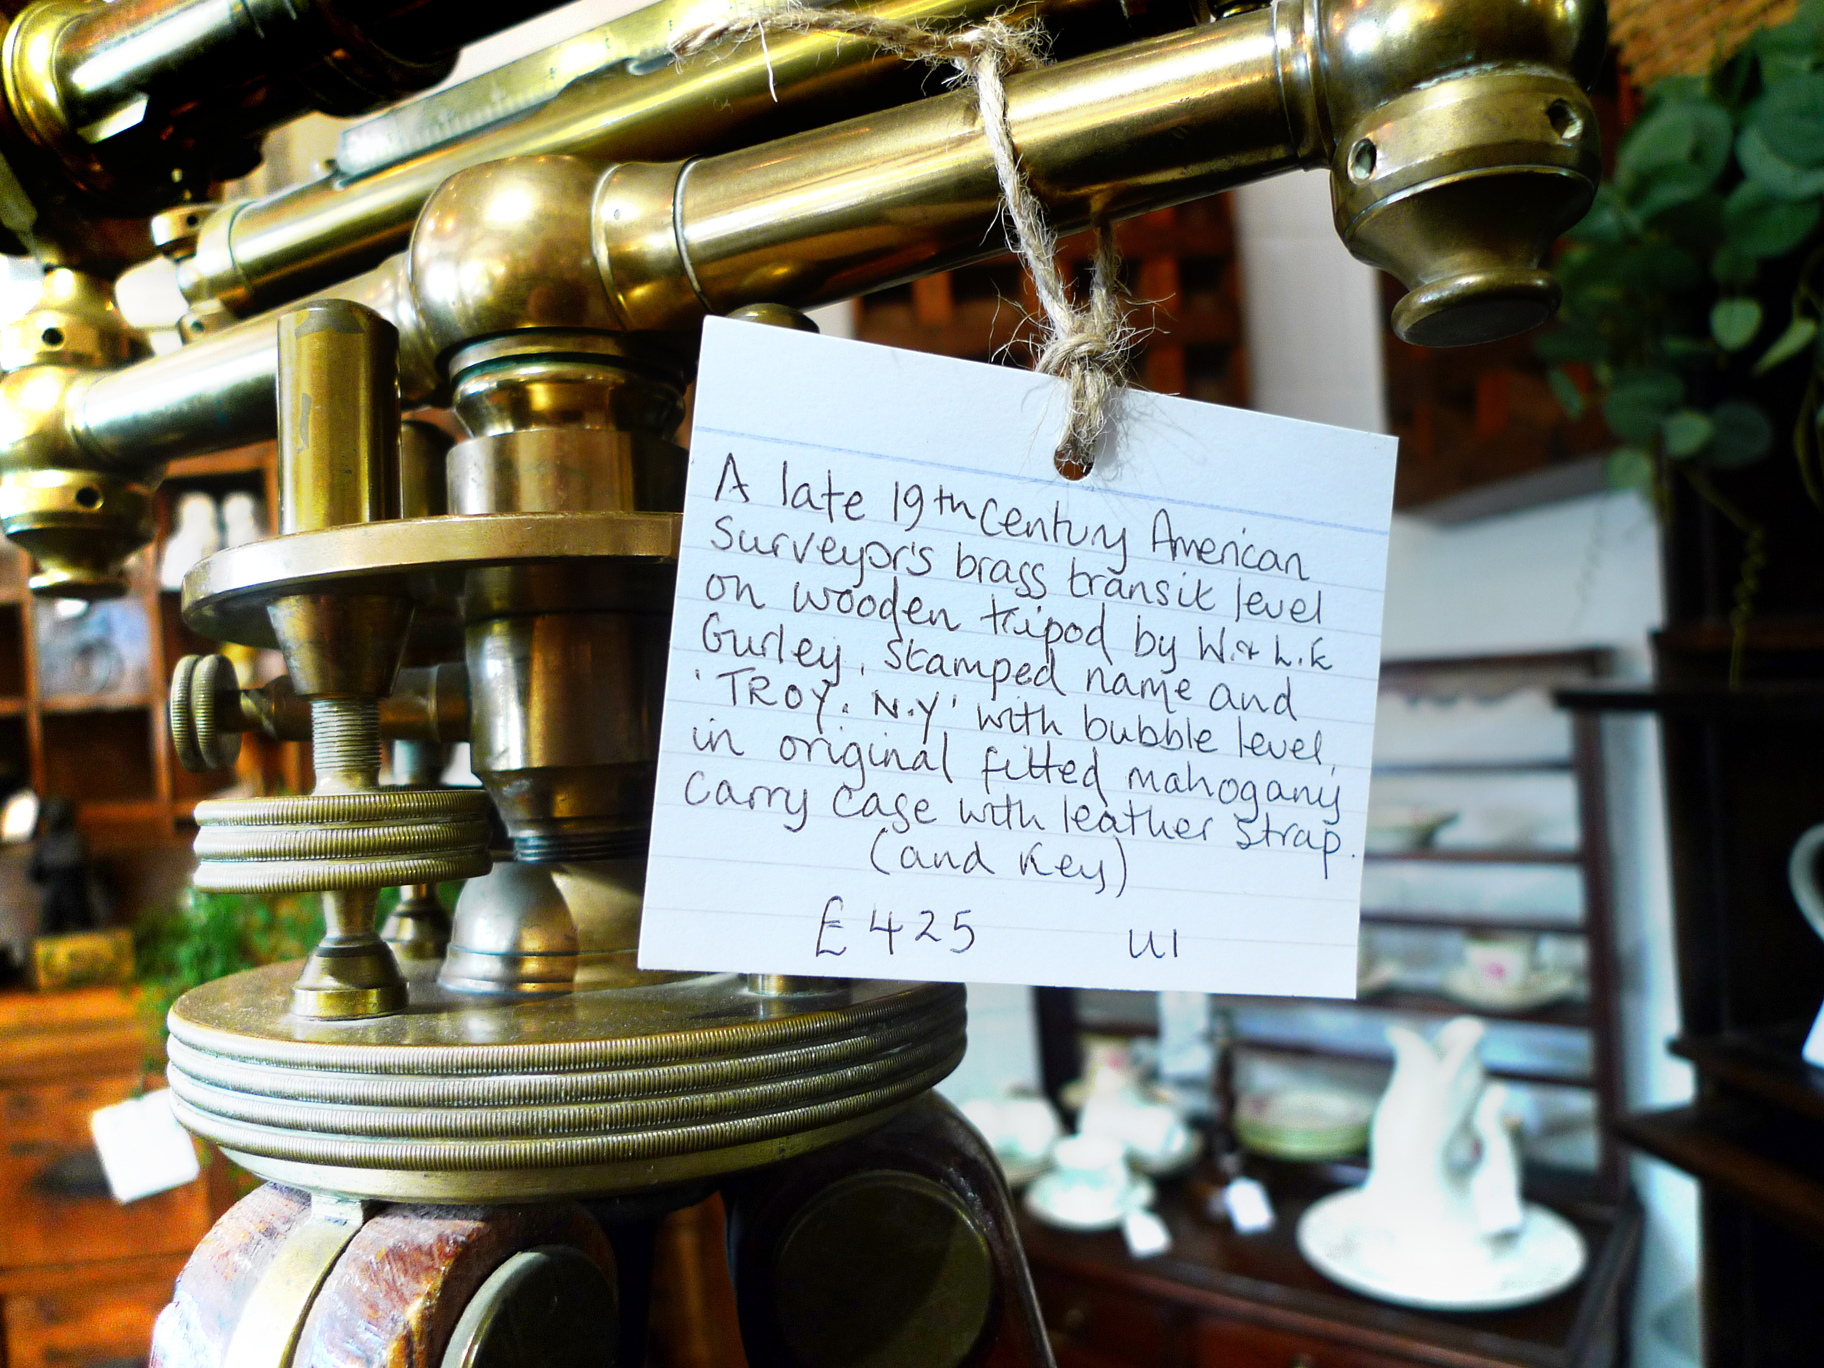 A late 19th Century American
Surveyor's brass transit level
on wooden tripod by W. & L. E
Gurley, Stamped name and
'TROY. N.Y' with bubble level,
in original fitted mahogany
Carry Case with leather Strap.
(and Key)
£425 U1